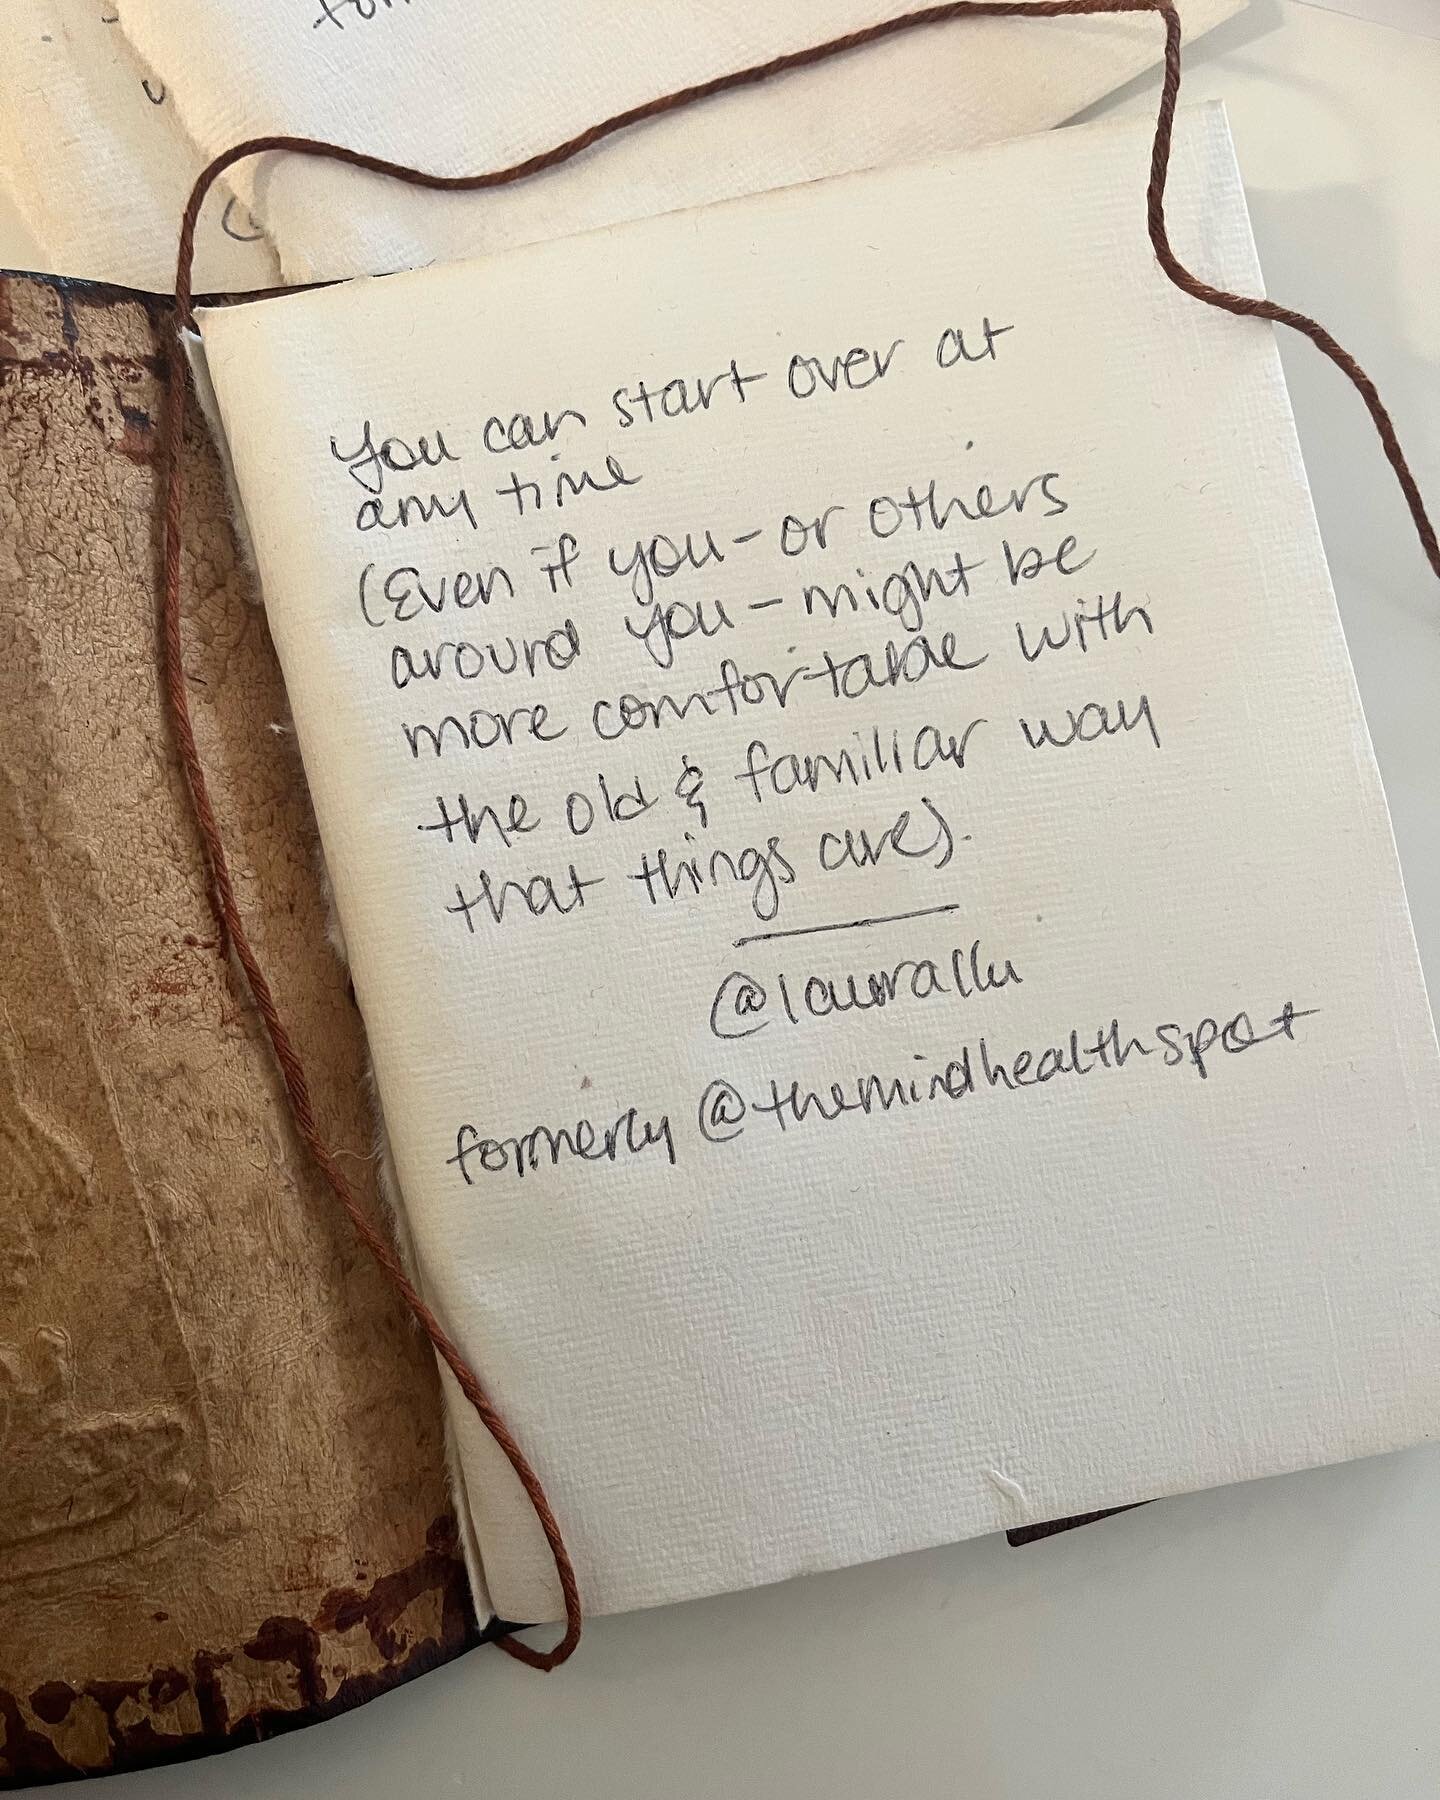 You can start over at
any time
(Even if you - or others
around you - might be
more comfortable with
the old & familiar way
that things are).
@laurallu
formerly @themindhealthspot